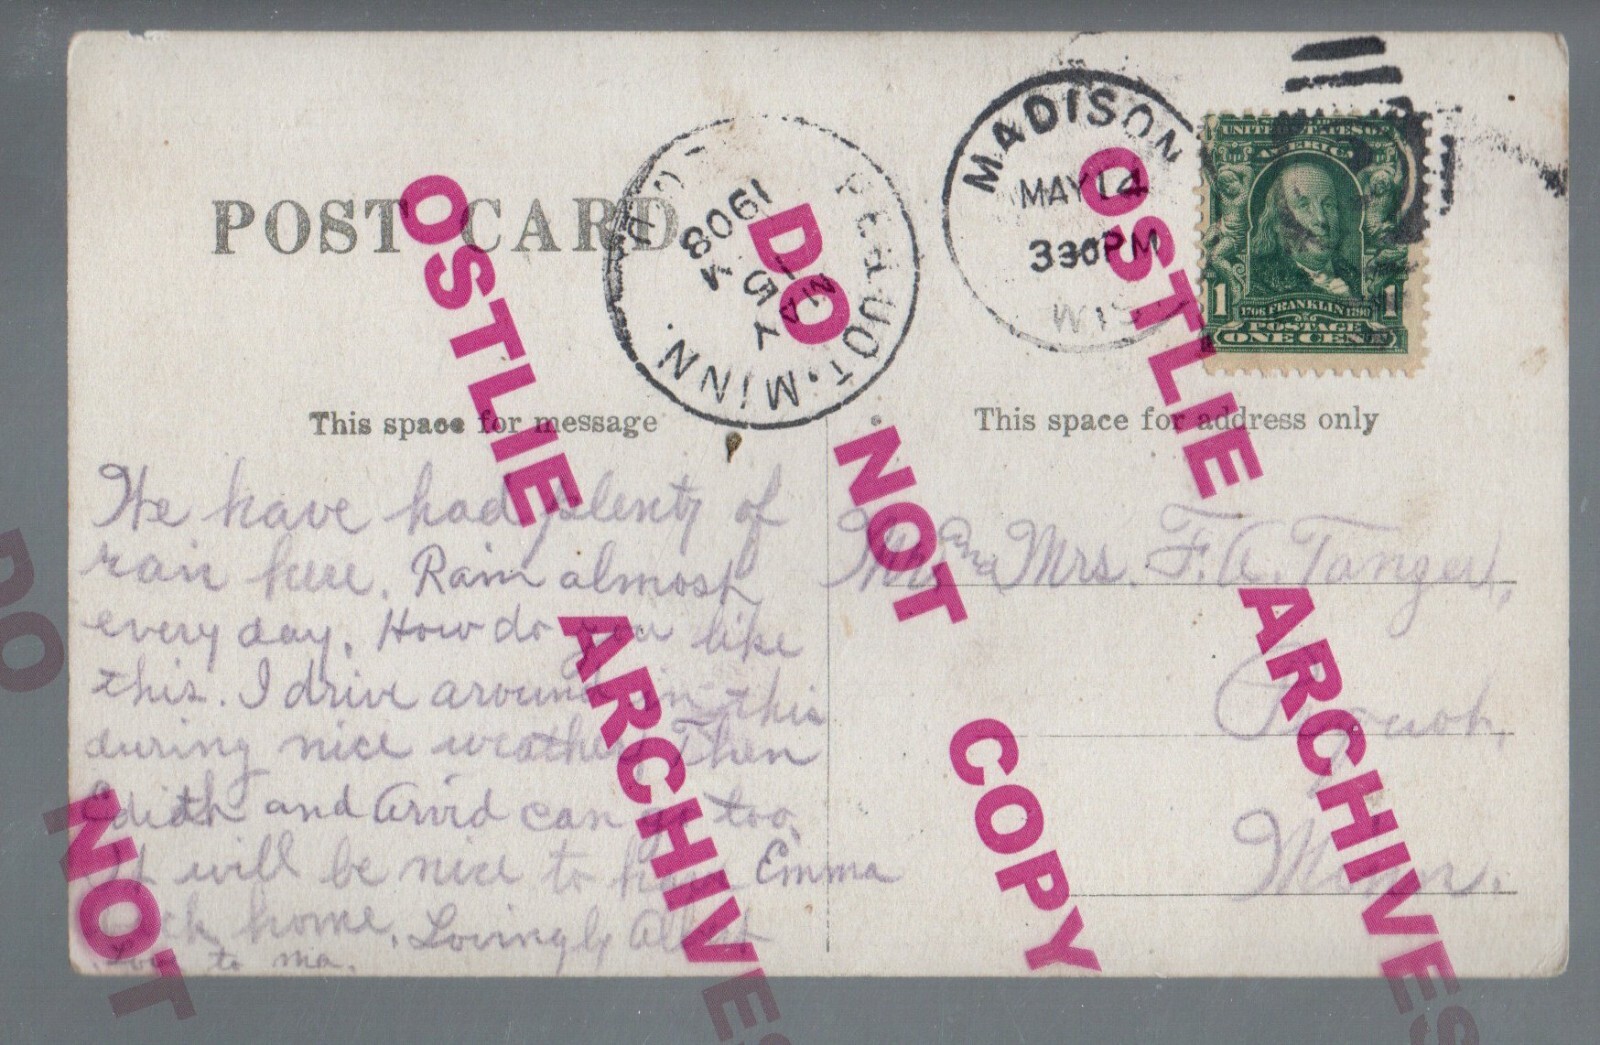 POST CARD
PEQUOT, MINN.
MAY
15
4
1908
MADISON
MAY 14
330PM
WIS
UNITED STATES OF
AMERICA
1 1706 FRANKLIN 1790 1
POSTAGE
ONE CENT
This space for message
This space for address only
We have had plenty of
rain here. Rain almost
every day. How do you like
this. I drive around in this
during nice weather. Then
Edith and Arvid can go too.
It will be nice to have Emma
back home. Lovingly Albert
Love to ma.
Mr. and Mrs. F. A. Tanger,
Pequot,
Minn.
OSTLIE ARCHIVES
DO NOT COPY
OSTLIE ARCHIVES
DO NOT